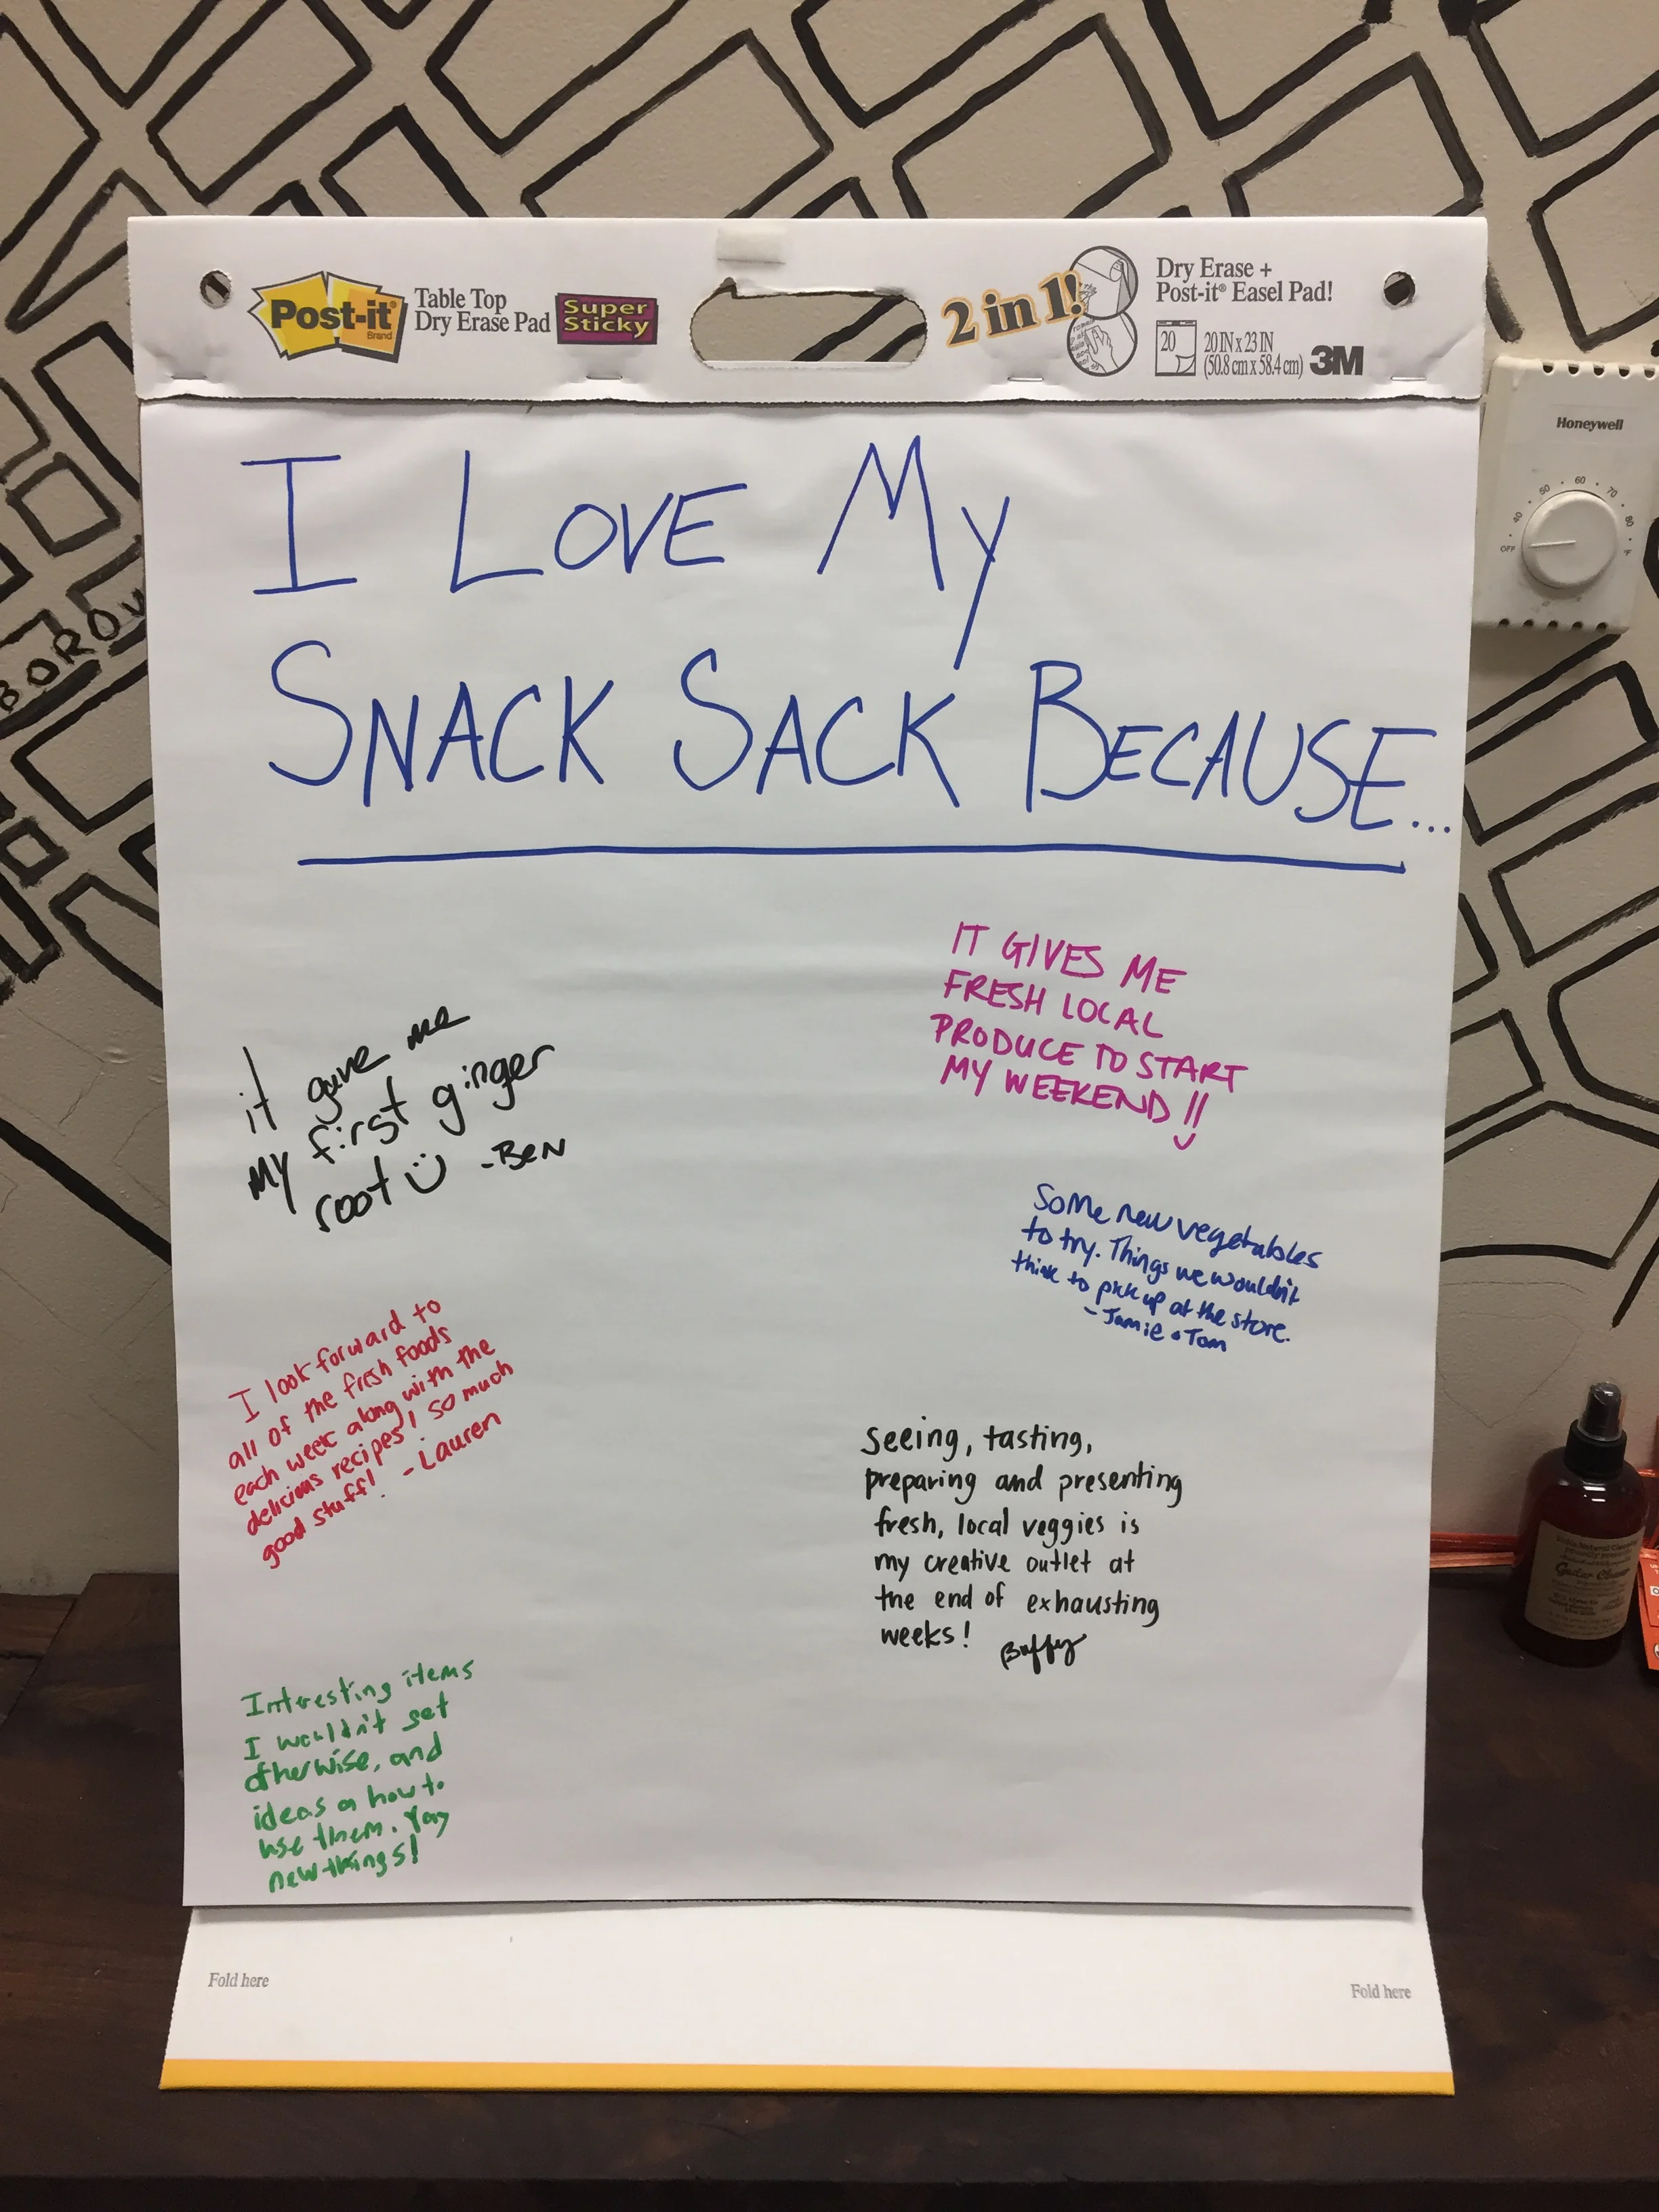 Post-it
Brand
Table Top
Dry Erase Pad
Super
Sticky
2 in 1!
Dry Erase +
Post-it® Easel Pad!
20
20 IN x 23 IN
(50.8 cm x 58.4 cm)
3M
Honeywell
OFF 40 50 60 70 80 °F
I LOVE MY
SNACK SACK BECAUSE...
IT GIVES ME
FRESH LOCAL
PRODUCE TO START
MY WEEKEND!!
it gave me
my first ginger
root -Ben
Some new vegetables
to try. Things we wouldn't
think to pick up at the store.
- Jamie + Tom
I look forward to
all of the fresh foods
each week along with the
delicious recipes! so much
good stuff! - Lauren
Seeing, tasting,
preparing and presenting
fresh, local veggies is
my creative outlet at
the end of exhausting
weeks! Buffy
Interesting items
I wouldn't get
otherwise, and
ideas on how to
use them. Yay
new things!
Fold here
Fold here